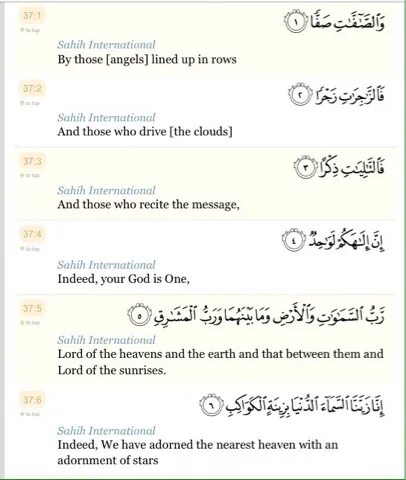 37:1
وَالصَّافَّاتِ صَفًّا ١
to top
Sahih International
By those [angels] lined up in rows
37:2
فَالزَّاجِرَاتِ زَجْرًا ٢
to top
Sahih International
And those who drive [the clouds]
37:3
فَالتَّالِيَاتِ ذِكْرًا ٣
to top
Sahih International
And those who recite the message,
37:4
إِنَّ إِلَٰهَكُمْ لَوَاحِدٌ ٤
to top
Sahih International
Indeed, your God is One,
37:5
رَّبُّ السَّمَاوَاتِ وَالْأَرْضِ وَمَا بَيْنَهُمَا وَرَبُّ الْمَشَارِقِ ٥
to top
Sahih International
Lord of the heavens and the earth and that between them and
Lord of the sunrises.
37:6
إِنَّا زَيَّنَّا السَّمَاءَ الدُّنْيَا بِزِينَةٍ الْكَوَاكِبِ ٦
to top
Sahih International
Indeed, We have adorned the nearest heaven with an
adornment of stars